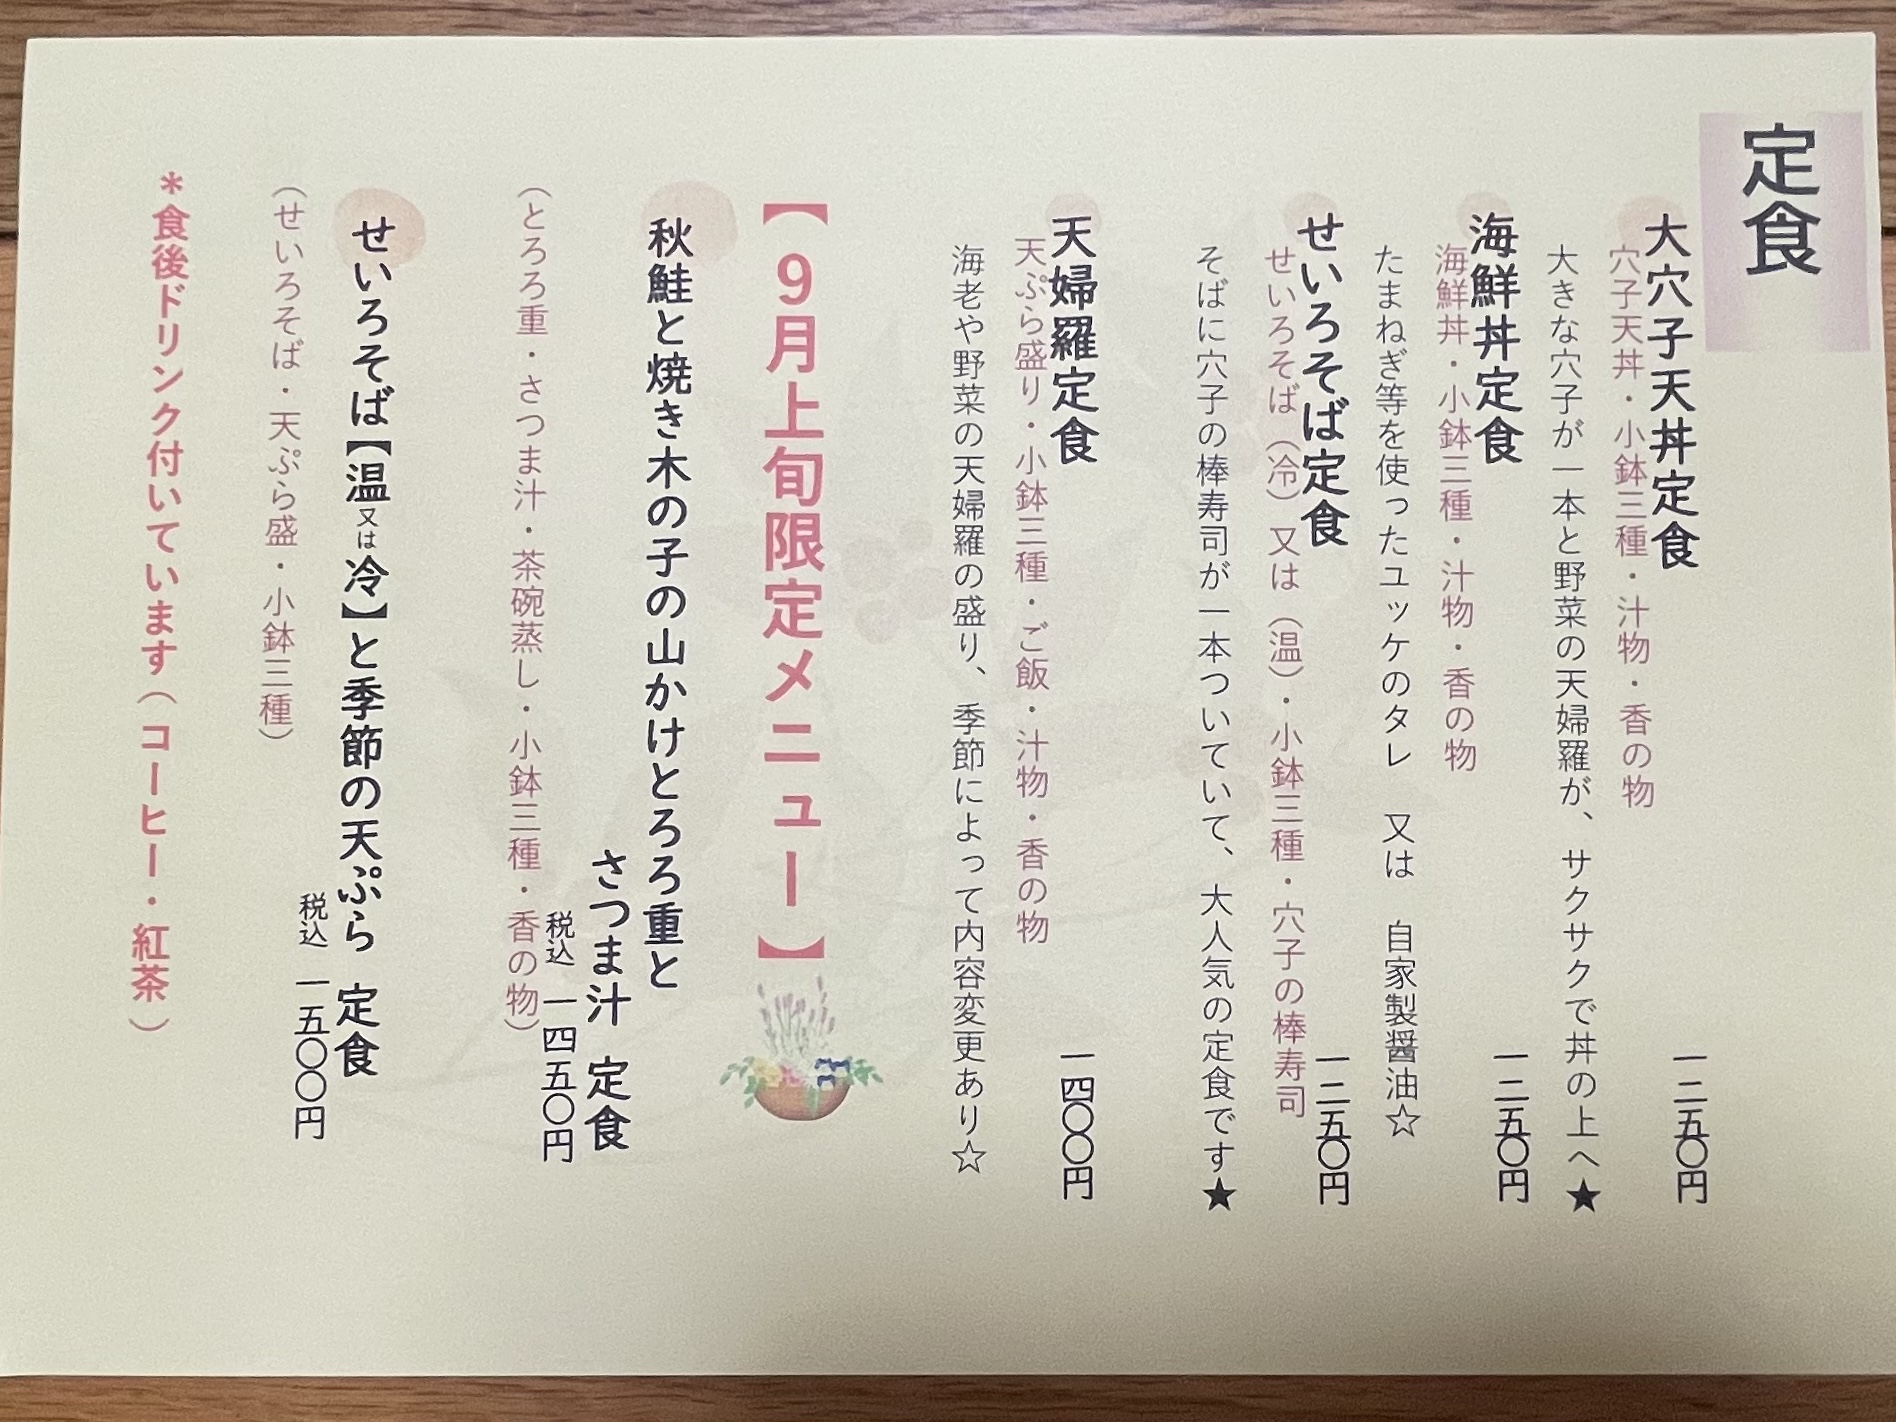 定食
大穴子天丼定食 一二五〇円
穴子天丼・小鉢三種・汁物・香の物
大きな穴子が一本と野菜の天婦羅が、サクサクで丼の上へ★
海鮮丼定食 一二五〇円
海鮮丼・小鉢三種・汁物・香の物
たまねぎ等を使ったユッケのタレ 又は 自家製醤油☆
せいろそば定食 一二五〇円
せいろそば（冷）又は（温）・小鉢三種・穴子の棒寿司
そばに穴子の棒寿司が一本ついていて、大人気の定食です★
天婦羅定食 一四〇〇円
天ぷら盛り・小鉢三種・ご飯・汁物・香の物
海老や野菜の天婦羅の盛り、季節によって内容変更あり☆
【9月上旬限定メニュー】
秋鮭と焼き木の子の山かけとろろ重と
さつま汁 定食
税込 一四五〇円
（とろろ重・さつま汁・茶碗蒸し・小鉢三種・香の物）
せいろそば【温又は冷】と季節の天ぷら 定食
税込 一五〇〇円
（せいろそば・天ぷら盛・小鉢三種）
＊食後ドリンク付いています（コーヒー・紅茶）